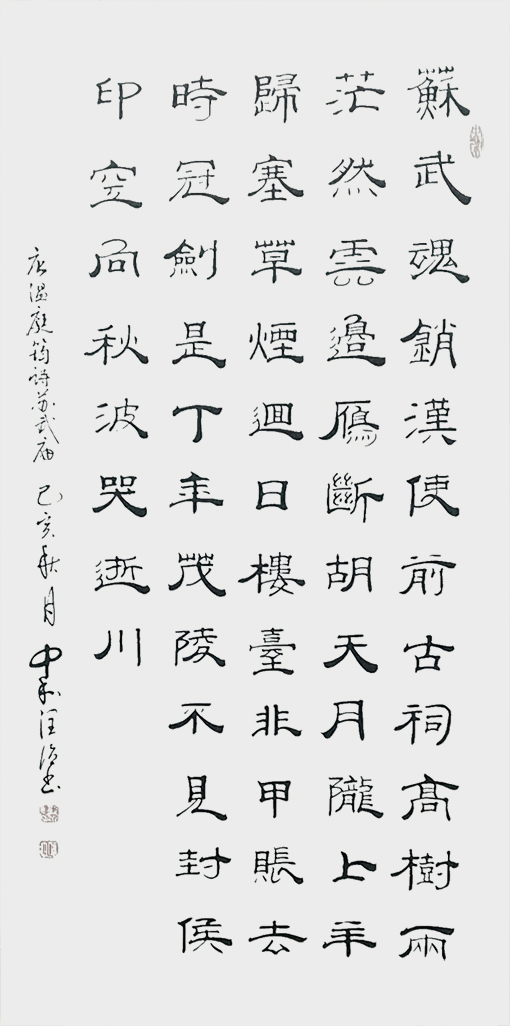 蘇武魂銷漢使前古祠髙樹兩
茫然雲邊鴈斷胡天月隴上羊
歸塞草煙迴日樓臺非甲賬去
時冠劍是丁年茂陵不見封侯
印空向秋波哭逝川
唐温庭筠诗苏武庙 己亥秋月 汪书